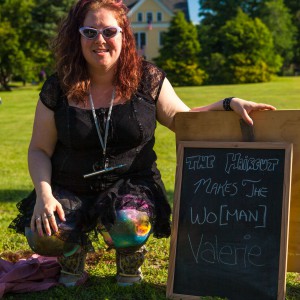 THE HAIRCUT
MAKES THE
WO[MAN]
Valerie